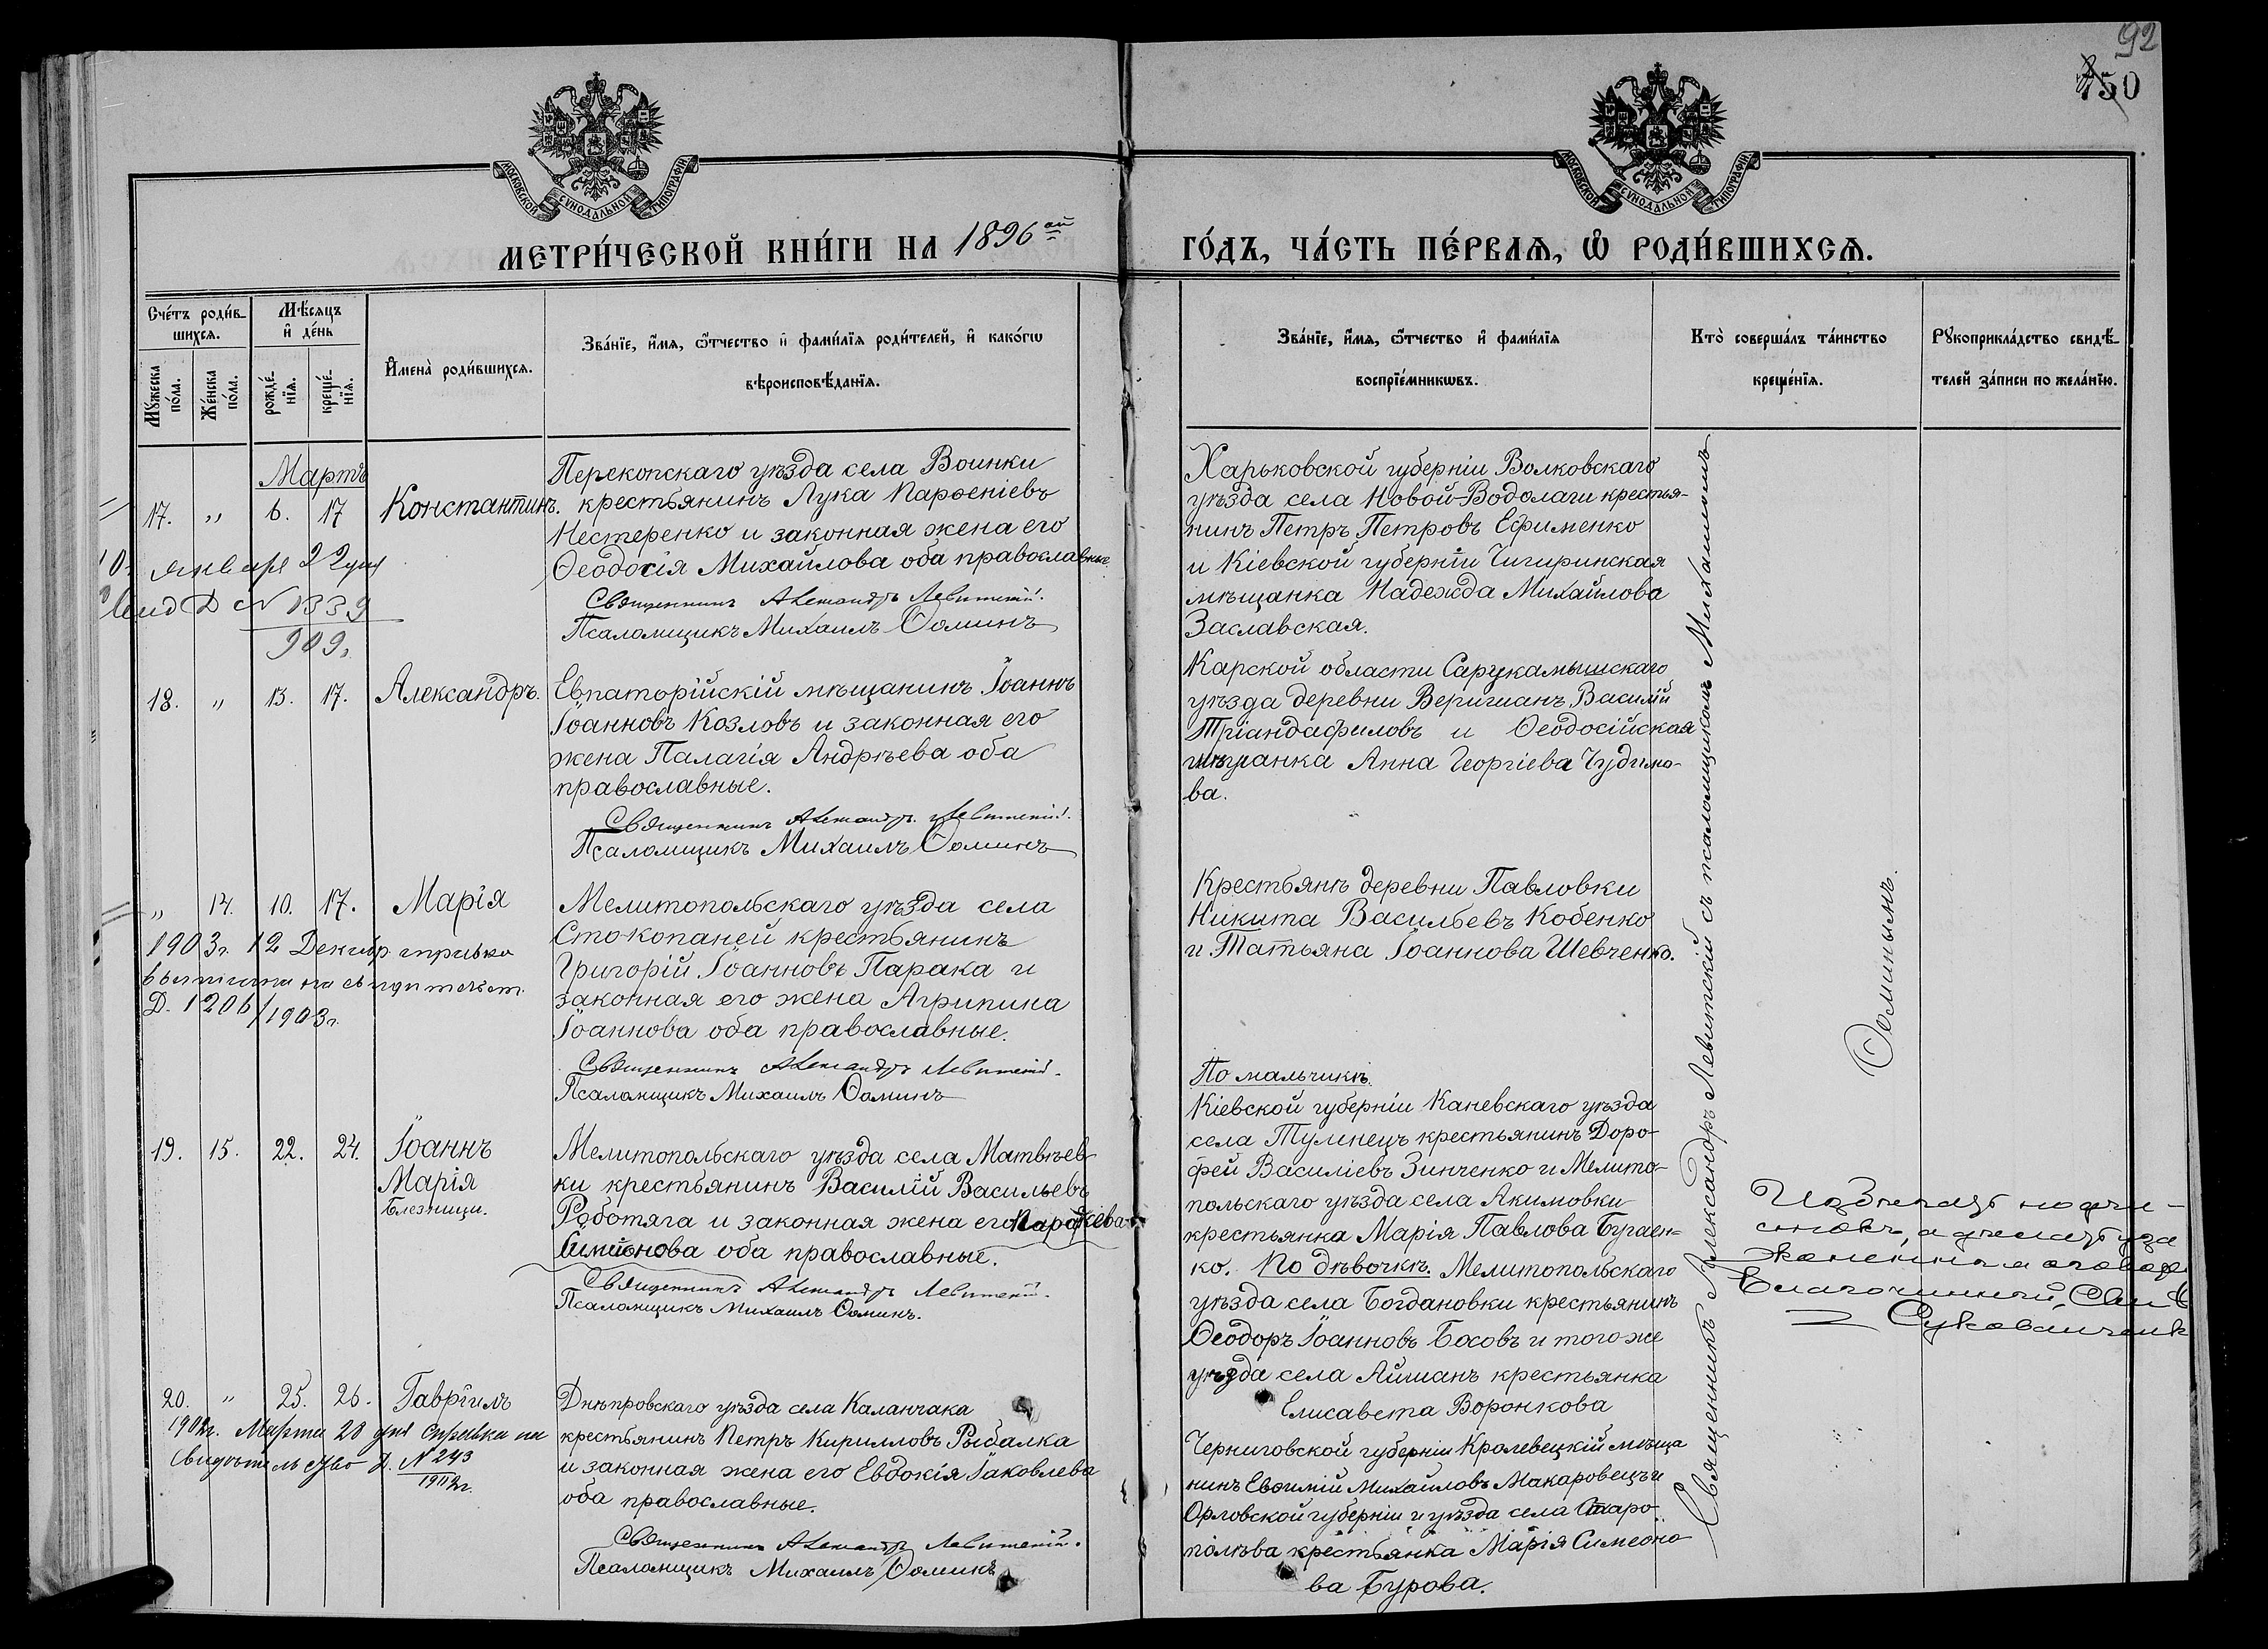 92
150
МОСКОВСКОЙ СѴНОДАЛЬНОЙ ТИПОГРАФІИ
МОСКОВСКОЙ СѴНОДАЛЬНОЙ ТИПОГРАФІИ
МЕТРИ́ЧЕСКОЙ КНИ́ГИ НА 1896ой
ГО́ДЪ, ЧА́СТЬ ПЕ́РВАѦ, Ѡ҆ РОДИ́ВШИХСѦ.
Сче́тъ роди́в-
шихся.
Мꙋ́жеска по́ла.
Же́нска по́ла.
Мѣ́сяцъ
и҆ де́нь
рожде́-
нїя.
креще́-
нїя.
И҆мена̀ роди́вшихся.
Зва́нїе, и҆́мя, ѻ҆́тчество и҆ фами́лїя роди́телей, и҆ како́гѡ
вѣроисповѣ́данїя.
Зва́нїе, и҆́мя, ѻ҆́тчество и҆ фами́лїя
воспрїе́мникѡвъ.
Кто̀ соверша́лъ та́инство
креще́нїя.
Рꙋкоприкла́дство свидѣ́-
телей за́писи по жела́нїю.
Мартъ
17. „ 6. 17 Константинъ.
Перекопскаго уѣзда села Воинки
крестьянинъ Лука Парѳеніевъ
Нестеренко и законная жена его
Ѳеодосія Михайлова оба православные.
Священникъ Александръ Левитскій.
Псаломщикъ Михаилъ Ѳоминъ
января 22 дня
Д № 1339
909.
Харьковской губерніи Волковскаго
уѣзда села Новой-Водолаги крестья-
нинъ Петръ Петровъ Ефименко
и Кіевской губерніи Чигиринская
мѣщанка Надежда Михайлова
Заславская.
18. „ 13. 17. Александръ.
Евпаторійскій мѣщанинъ Іоаннъ
Іоанновъ Козловъ и законная его
жена Палагія Андрѣева оба
православные.
Священникъ Александръ Левитскій.
Псаломщикъ Михаилъ Ѳоминъ
Карской области Сарукамышскаго
уѣзда деревни Веришанъ, Василій
Тріандафиловъ и Ѳеодосійская
мѣщанка Анна Георгіева Чудимо-
ва.
„ 14. 10. 17. Марія
Мелитопольскаго уѣзда села
Сто-копаней крестьянинъ
Григорій Іоанновъ Парака и
законная его жена Агрипина
Іоаннова оба православные.
Священникъ Александръ Левитскій.
Псаломщикъ Михаилъ Ѳоминъ
1903г. 12 Декабр справка
выписана на свидѣтельст.
Д. 1206/1903г.
Крестьянѣ деревни Павловки
Никита Васильевъ Кобенко
и Татьяна Іоаннова Шевченко.
19. 15. 22. 24. Іоаннъ
Марія
Близнецы.
Мелитопольскаго уѣзда села Матвѣев-
ки крестьянинъ Василій Васильевъ
Роботяга и законная жена его Параскева
Симеонова оба православные.
Священникъ Александръ Левитскій.
Псаломщикъ Михаилъ Ѳоминъ.
По мальчикѣ.
Кіевской губерніи Каневскаго уѣзда
села Тулинецъ крестьянинъ Доро-
фей Василіевъ Зинченко и Мелито-
польскаго уѣзда села Акимовки
крестьянка Марія Павлова Бугаен-
ко. По дѣвочкѣ. Мелитопольскаго
уѣзда села Богдановки крестьянинъ
Ѳеодоръ Іоанновъ Босовъ и того же
уѣзда села Айманъ крестьянка
Елисавета Воронкова
20. „ 25. 26. Гавріилъ
Днѣпровскаго уѣзда села Каланчака
крестьянинъ Петръ Кирилловъ Рыбалка
и законная жена его Евдокія Іаковлева
оба православные.
Священникъ Александръ Левитскій.
Псаломщикъ Михаилъ Ѳоминъ
Марта 28 дня справка на
свидѣтельство Д. № 243
Черниговской губерніи Кролевецкій мѣща
нинъ Евѳимій Михайловъ Макаровецъ и
Орловской губерніи и уѣзда села Старо
полѣва крестьянка Марія Симеоно
ва Бурова.
Священникъ Александръ Левитскій съ псаломщикомъ Михаиломъ
Ѳоминымъ.
Благочинный, Свящ